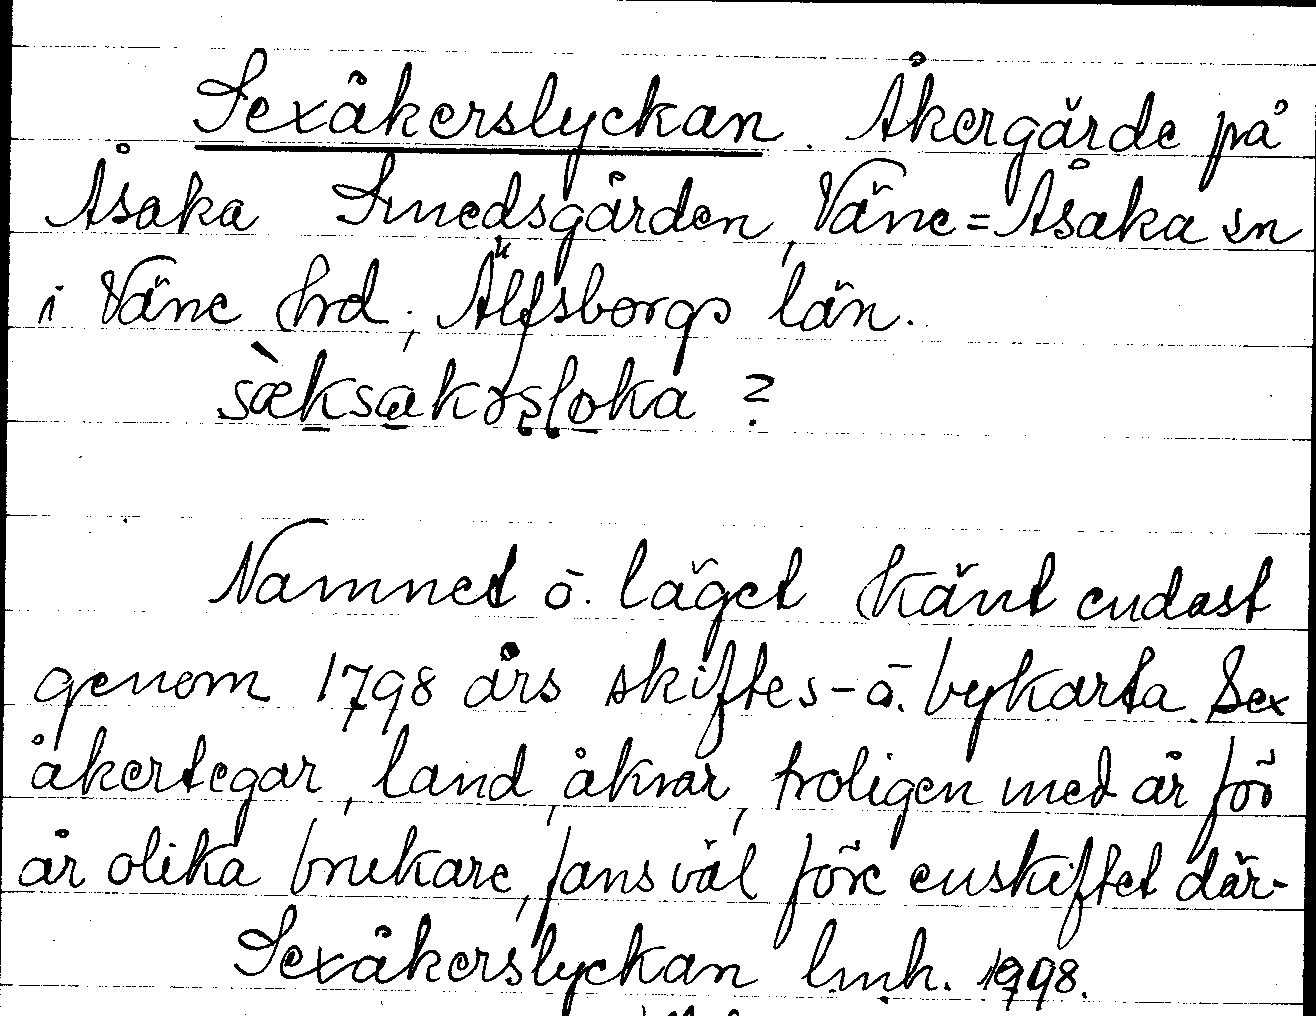 Sexåkerslyckan. Åkergärde på
Åsaka Smedsgården, Väne=Åsaka sn
i Väne hrd, Älfsborgs län.
sæ̀ksakɔsloka ?
Namnet o. läget känt endast
genom 1798 års skiftes- o. bykarta. Sex
åkertegar, land, åkrar, troligen med år för
år olika brukare, fans väl före enskiftet där-
Sexåkerslyckan lmh. 1998.